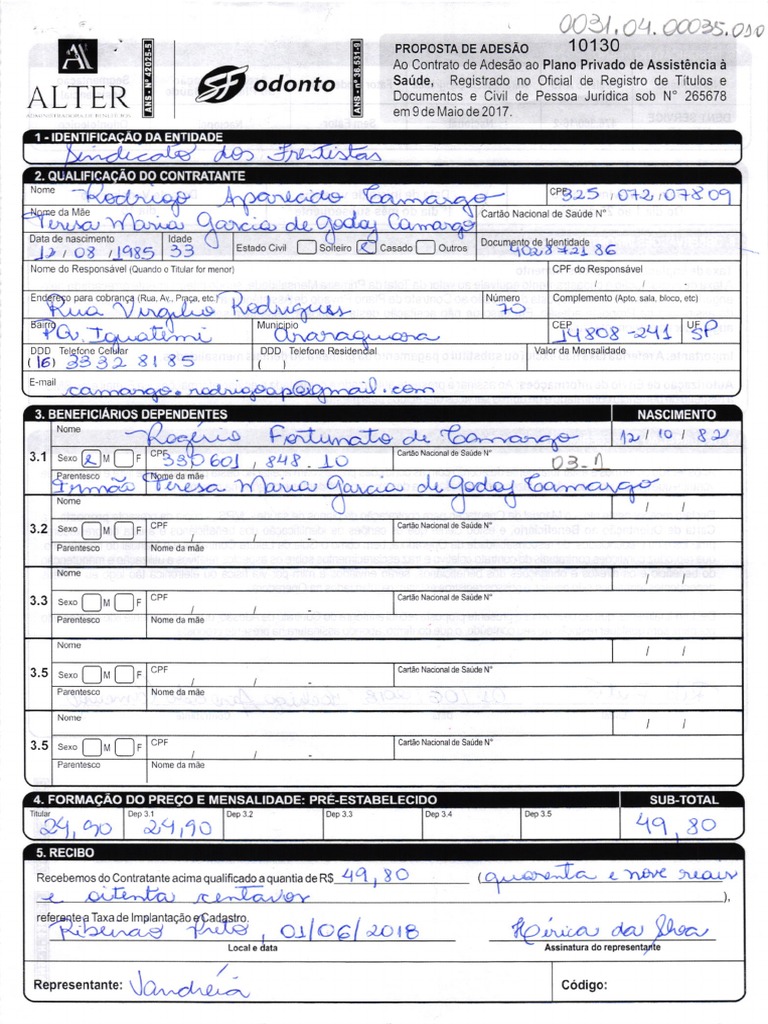 0031.04.00035.010
ALTER
ADMINISTRADORA DE BENEFÍCIOS
ANS - Nº 42025-5
SF odonto
ANS - nº 36.531-9
PROPOSTA DE ADESÃO 10130
Ao Contrato de Adesão ao Plano Privado de Assistência à
Saúde, Registrado no Oficial de Registro de Títulos e
Documentos e Civil de Pessoa Juridica sob N° 265678
em 9 de Maio de 2017.
1 - IDENTIFICAÇÃO DA ENTIDADE
Sindicato dos Frentistas
2. QUALIFICAÇÃO DO CONTRATANTE
Nome Rodrigo Aparecido Camargo CPF 325.072.07809
Nome da Mãe Teresa Maria Garcia de Godoy Camargo Cartão Nacional de Saúde N°
Data de nascimento 12/08/1985 Idade 33 Estado Civil Solteiro x Casado Outros Documento de Identidade 402872186
Nome do Responsável (Quando o Titular for menor) CPF do Responsável / / -
Endereço para cobrança (Rua, Av., Praça, etc.) Rua Virgilio Rodrigues Número 70 Complemento (Apto, sala, bloco, etc)
Bairro PQ. Iguatemi Municipio Araraquara CEP 14808-241 UF SP
DDD Telefone Celular (16) 3332 8185 DDD Telefone Residencial ( ) Valor da Mensalidade
E-mail camargo.rodrigoap@gmail.com
3. BENEFICIÁRIOS DEPENDENTES NASCIMENTO
Nome Rogério Fortunato de Camargo 12/10/82
3.1 Sexo x M F CPF 330601.848.10 Cartão Nacional de Saúde N° 03-1
Parentesco Irmão Nome da mãe Teresa Maria Garcia de Godoy Camargo
Nome / /
3.2 Sexo M F CPF / / - Cartão Nacional de Saúde N°
Parentesco Nome da mãe
Nome / /
3.3 Sexo M F CPF / / - Cartão Nacional de Saúde N°
Parentesco Nome da mãe
Nome / /
3.5 Sexo M F CPF / / - Cartão Nacional de Saúde N°
Parentesco Nome da mãe
Nome / /
3.5 Sexo M F CPF / / - Cartão Nacional de Saúde N°
Parentesco Nome da mãe
4. FORMAÇÃO DO PREÇO E MENSALIDADE: PRÉ-ESTABELECIDO SUB-TOTAL
Titular Dep 3.1 Dep 3.2 Dep 3.3 Dep 3.4 Dep 3.5
24,90 24,90 49,80
5. RECIBO
Recebemos do Contratante acima qualificado a quantia de R$ 49,80 (quarenta e nove reais
e oitenta centavos ),
referente a Taxa de Implantação e Cadastro.
Ribeirao Preto, 01/06/2018 da
Local e data Assinatura do representante
Representante: Vandréia Código: